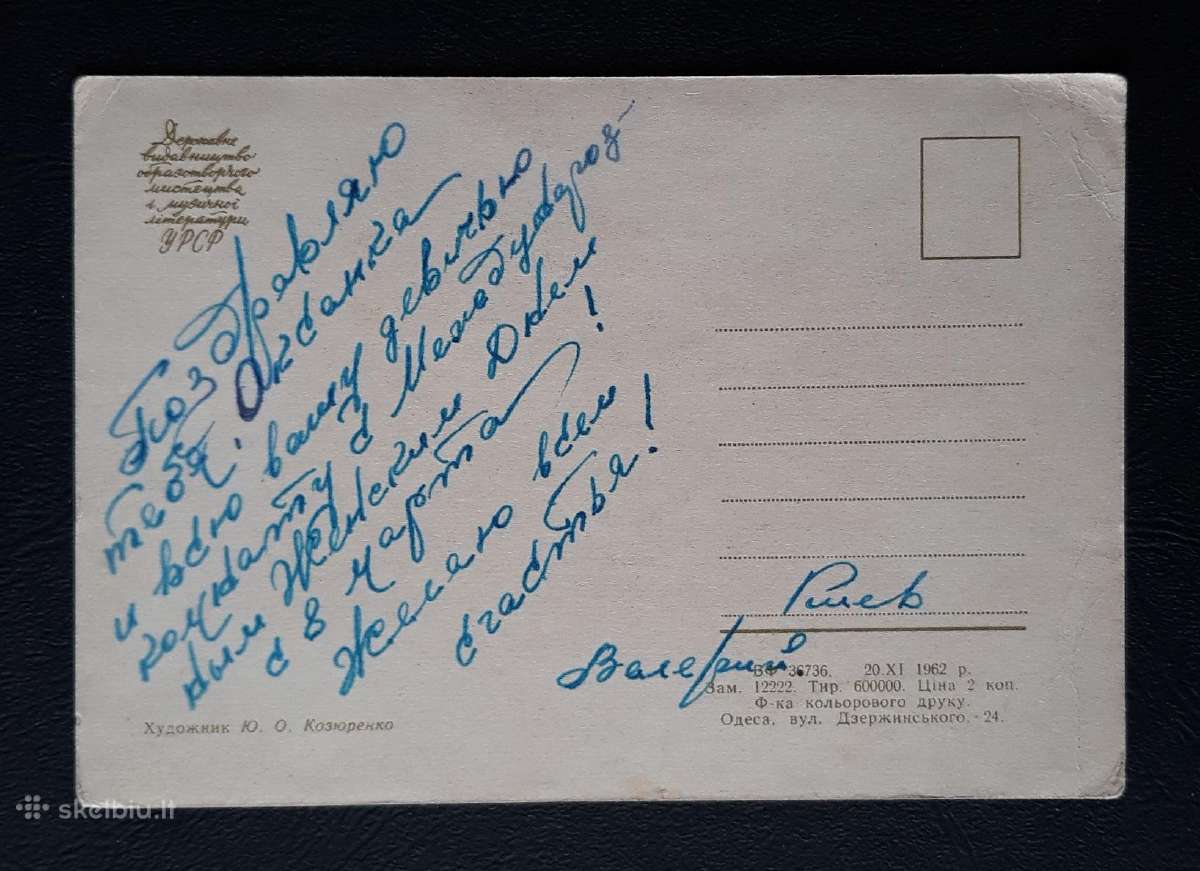 Державне
видавництво
образотворчого
мистецтва
і музичної
літератури
УРСР
Поздравляю
тебя, Оксанка
и всю вашу девичью
комнату с Международ-
ным Женским Днем
с 8 марта!
Желаю всем
счастья!
Валерий.
Художник Ю. О. Козюренко
БФ 36736. 20.XI 1962 р.
Зам. 12222. Тир. 600000. Ціна 2 коп.
Ф-ка кольорового друку.
Одеса, вул. Дзержинського, 24.
skelbiu.lt